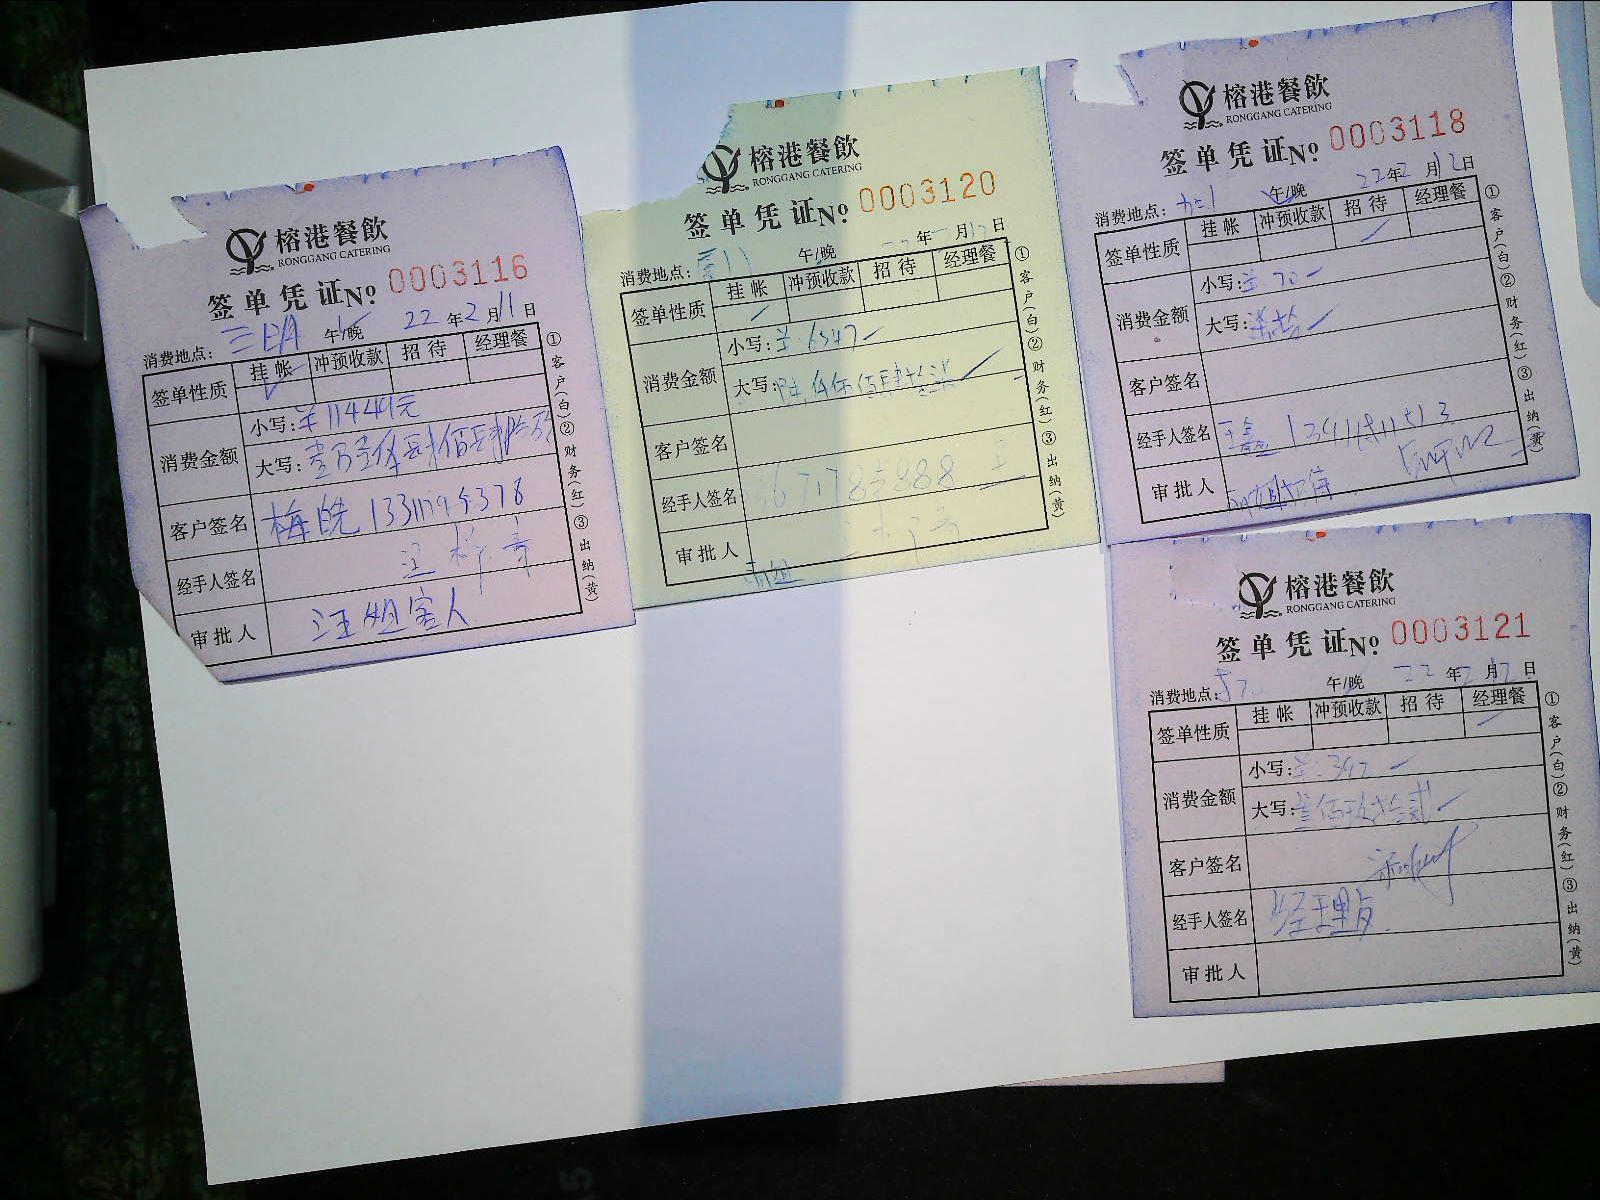 榕港餐飲
RONGGANG CATERING
签单凭证No 0003116
消费地点: 午/晚 22年2月11日
签单性质 挂帐 冲预收款 招待 经理餐
消费金额 小写:¥11449元
大写:
客户签名 梅皖
经手人签名
审批人 汪姐客人
①客户(白)②财务(红)③出纳(黄)
榕港餐飲
RONGGANG CATERING
签单凭证No 0003120
消费地点: 午/晚 年 月12日
签单性质 挂帐 冲预收款 招待 经理餐
消费金额 小写:¥6547
大写:
客户签名
经手人签名
审批人
①客户(白)②财务(红)③出纳(黄)
榕港餐飲
RONGGANG CATERING
签单凭证No 0003118
消费地点: 午/晚 22年2月12日
签单性质 挂帐 冲预收款 招待 经理餐
消费金额 小写:¥70
大写:
客户签名
经手人签名 王鑫
审批人
①客户(白)②财务(红)③出纳(黄)
榕港餐飲
RONGGANG CATERING
签单凭证No 0003121
消费地点: 午/晚 22年2月12日
签单性质 挂帐 冲预收款 招待 经理餐
消费金额 小写:
大写:
客户签名
经手人签名 经理
审批人
①客户(白)②财务(红)③出纳(黄)